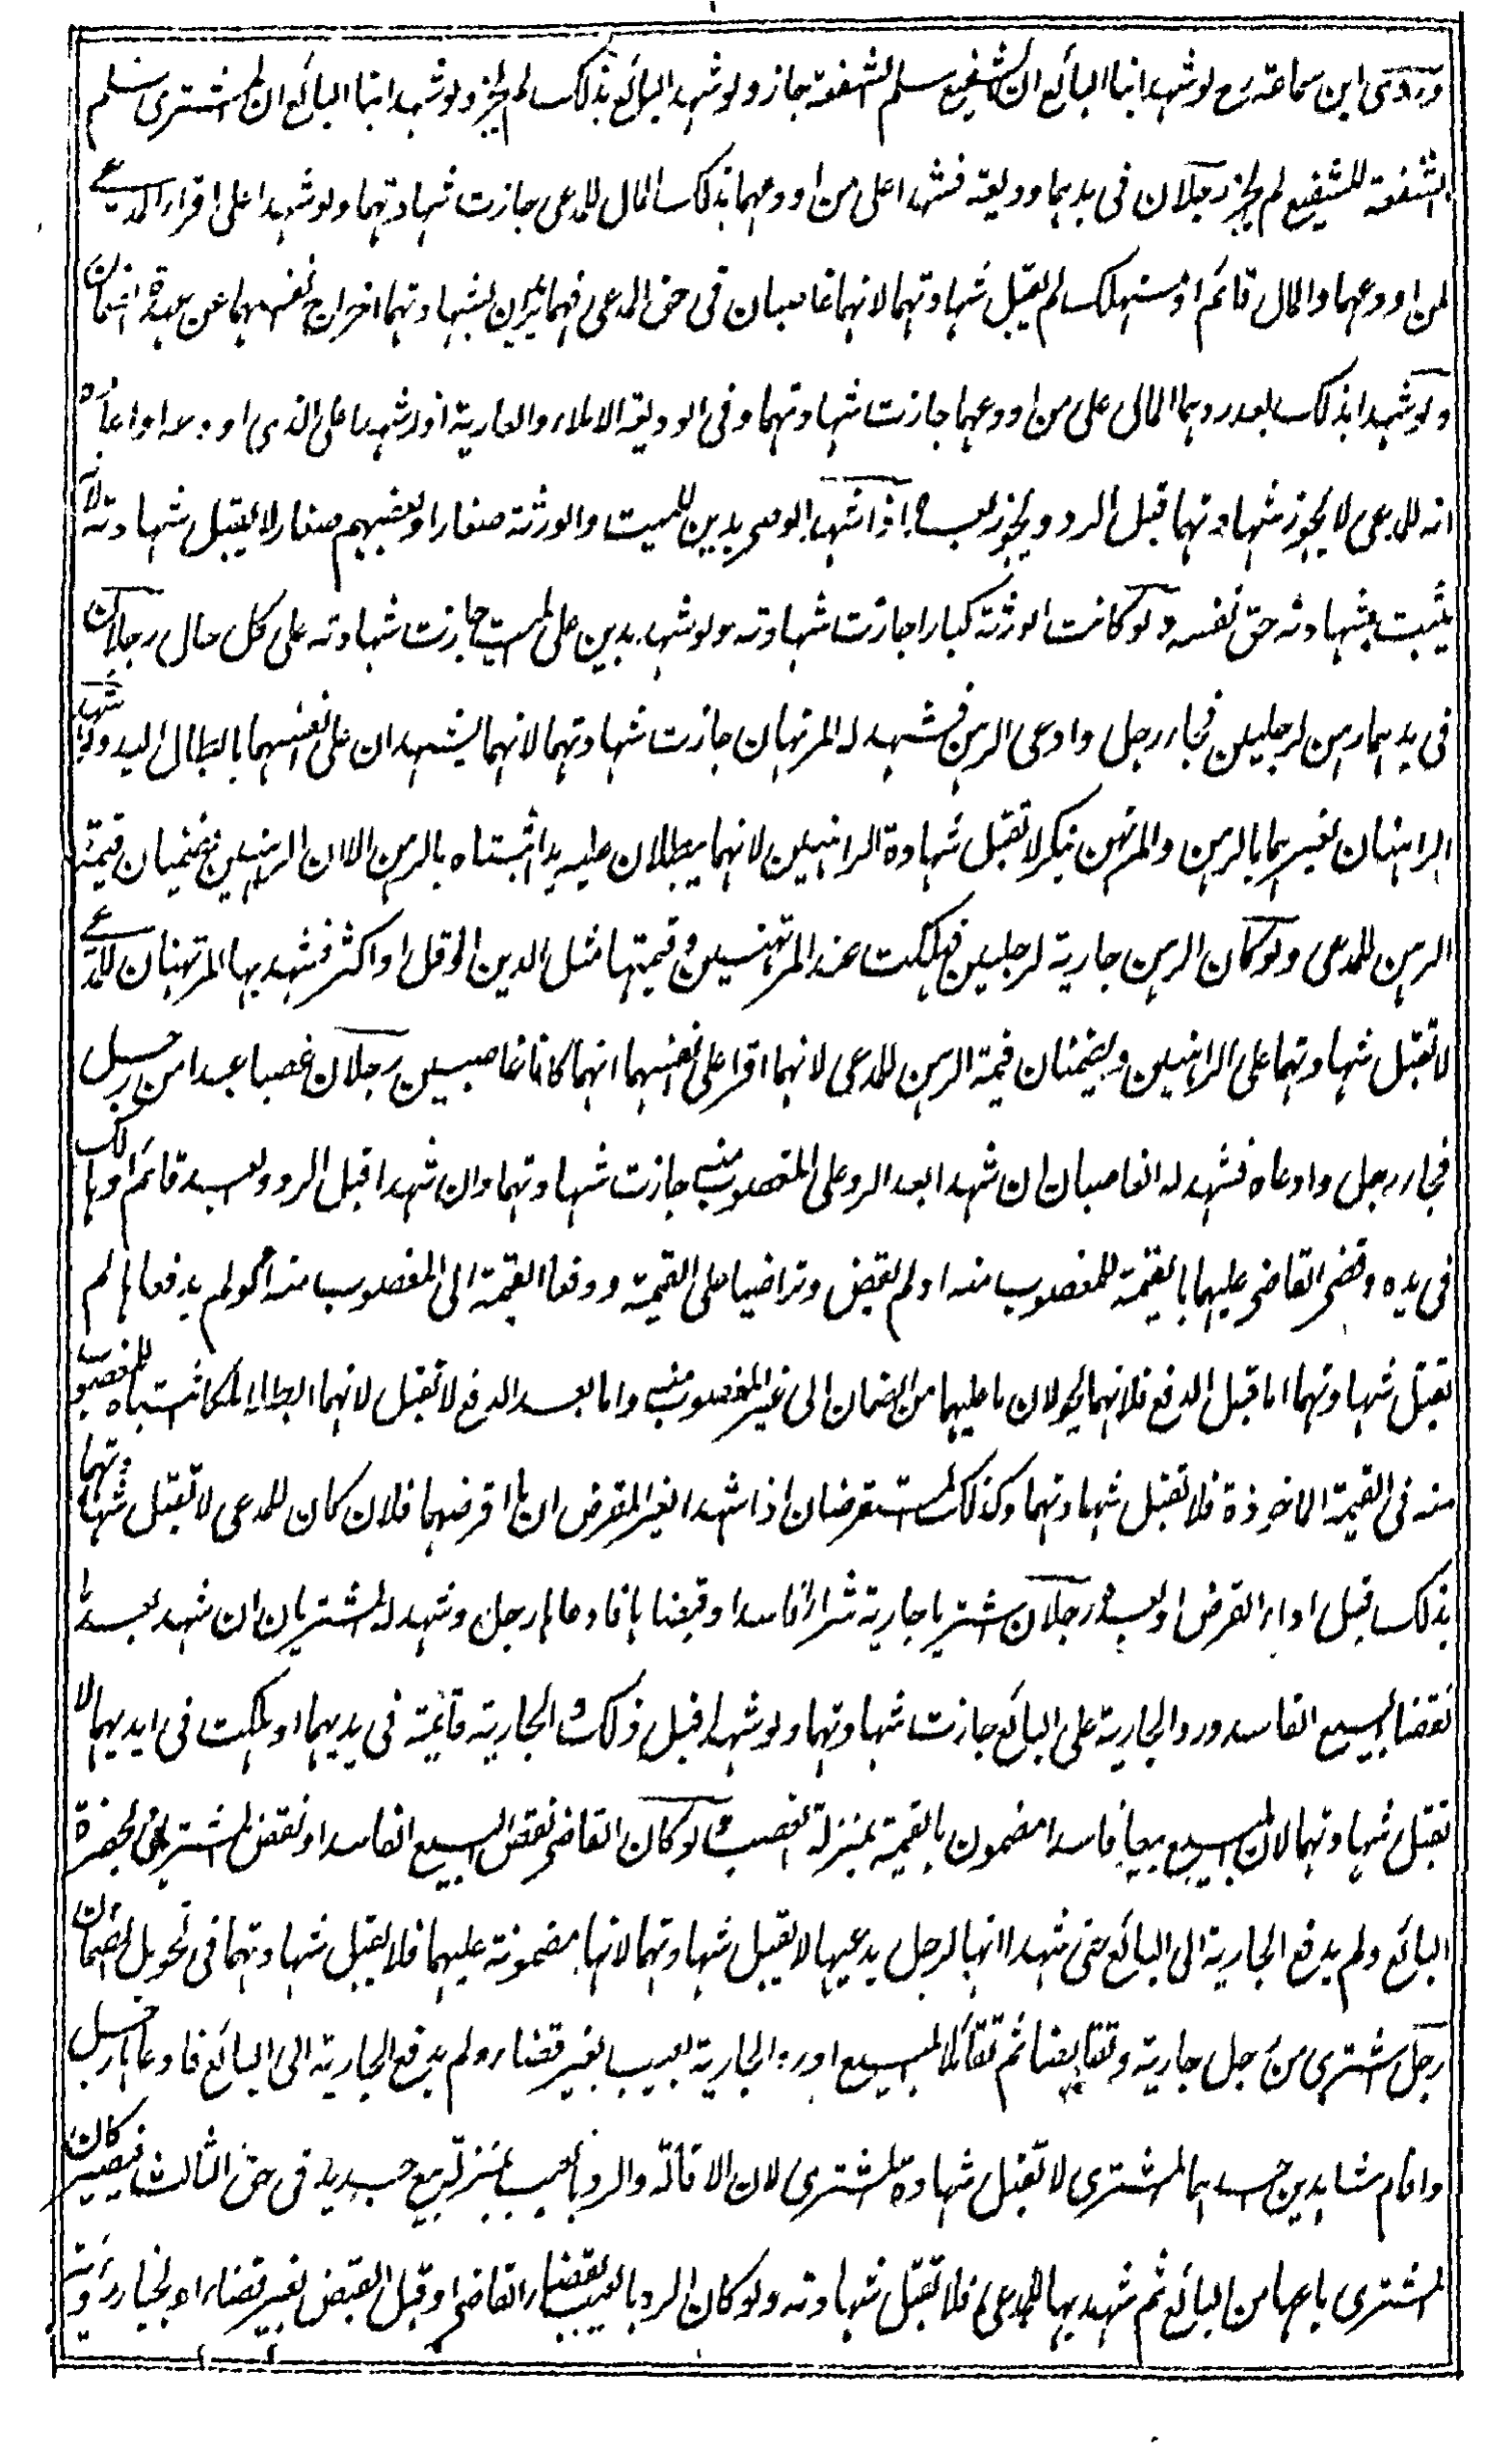 وروى ابن سماعة رح لو شهد ابنا البائع ان الشفيع سلم الشفعة جاز ولو شهد البائع بذلك لم يجز ولو شهد ابنا البائع ان المشترى سلم
الشفعة للشفيع لم يجز رجلان فى يديهما وديعة فشهدا على من اودعهما بذلك المال للمدعى جازت شهادتهما ولو شهدا على اقرار المدعى
لمن اودعهما والمال قائم او مستهلك لم تقبل شهادتهما لانهما غاصبان فى حق المدعى فهما يريدان بشهادتهما اخراج انفسهما عن عهدة الضمان
ولو شهدا بذلك بعد ردهما المال على من اودعهما جازت شهادتهما وفى الوديعة الاملاء والعارية اذا شهدا على الذى اودعه او اعاره
انه للمدعى لا يجوز شهادتهما قبل الرد ويجوز بعده اذا شهد الوصى بدين للميت والورثة صغار او بعضهم صغار لا يقبل شهادته لانه
يثبت بشهادته حق نفسه ولو كانت الورثة كبارا جازت شهادته ولو شهد بدين على الميت جازت شهادته على كل حال رجلان
فى يديهما رهن لرجلين فجاء رجل وادعى الرهن فشهد له المرتهنان جازت شهادتهما لانهما يشهدان على انفسهما بابطال اليد ولو شهد
الراهنان لغيرهما بالرهن والمرتهن ينكر لا تقبل شهادة الراهنين لانهما يبطلان عليه يدا اثبتاه بالرهن الا ان الراهنين يضمنان قيمة
الرهن للمدعى ولو كان الرهن جارية لرجلين فهلكت عند المرتهنين وقيمتها مثل الدين او اقل او اكثر فشهد بها المرتهنان للمدعى
لا تقبل شهادتهما على الراهنين ويضمنان قيمة الرهن للمدعى لانهما اقرا على انفسهما انهما كانا غاصبين رجلان غصبا عبدا من رجل
فجاء رجل وادعاه فشهد له الغاصبان ان شهدا بعد الرد على المغصوب منه جازت شهادتهما وان شهدا قبل الرد والعبد قائم او هالك
فى يده وقضى القاضى عليهما بالقيمة للمغصوب منه او لم يقض وتراضيا على القيمة ودفعا القيمة الى المغصوب منه او لم يدفعا ها لم
تقبل شهادتهما اما قبل الدفع فلانهما يحولان ما عليهما من الضمان الى غير المغصوب منه واما بعد الدفع لا تقبل لانهما ابطلا ملكا اثبتاه للمغصوب
منه فى القيمة الماخوذة فلا تقبل شهادتهما وكذلك المستقرضان اذا شهدا لغير المقرض ان ما اقرضهما فلان كان للمدعى لا تقبل شهادتهما
بذلك قبل اداء القرض او بعده رجلان اشتريا جارية شراء فاسدا وقبضا ها فادعاها رجل وشهد له المشتريان ان شهد بعد ما
نقضا البيع الفاسد ورد الجارية على البائع جازت شهادتهما ولو شهدا قبل ذلك والجارية قائمة فى يديهما او هلكت فى ايديهما لا
تقبل شهادتهما لان المبيع بيعا فاسدا مضمون بالقيمة بمنزلة الغصب ولو كان القاضى نقض البيع الفاسد او نقض المشتريان بحضرة
البائع ولم يدفع الجارية الى البائع حتى شهدا انها لرجل يدعيها لا يقبل شهادتهما لانها مضمونة عليهما فلا يقبل شهادتهما فى تحويل الضمان
رجل اشترى من رجل جارية وتقابضا ثم تقائلا المبيع او رد الجارية بعيب بغير قضاء ولم يدفع الجارية الى البائع فادعاها رجل
واقام شاهدين احدهما المشترى لا تقبل شهادة المشترى لان الاقالة والرد بالعيب بمنزلة بيع جديد فى حق الثالث فيصير كان
المشترى باعها من البائع ثم شهد بها للمدعى فلا تقبل شهادته ولو كان الرد بالعيب بقضاء القاضى او قبل القبض بغير قضاء او بخيار رؤية